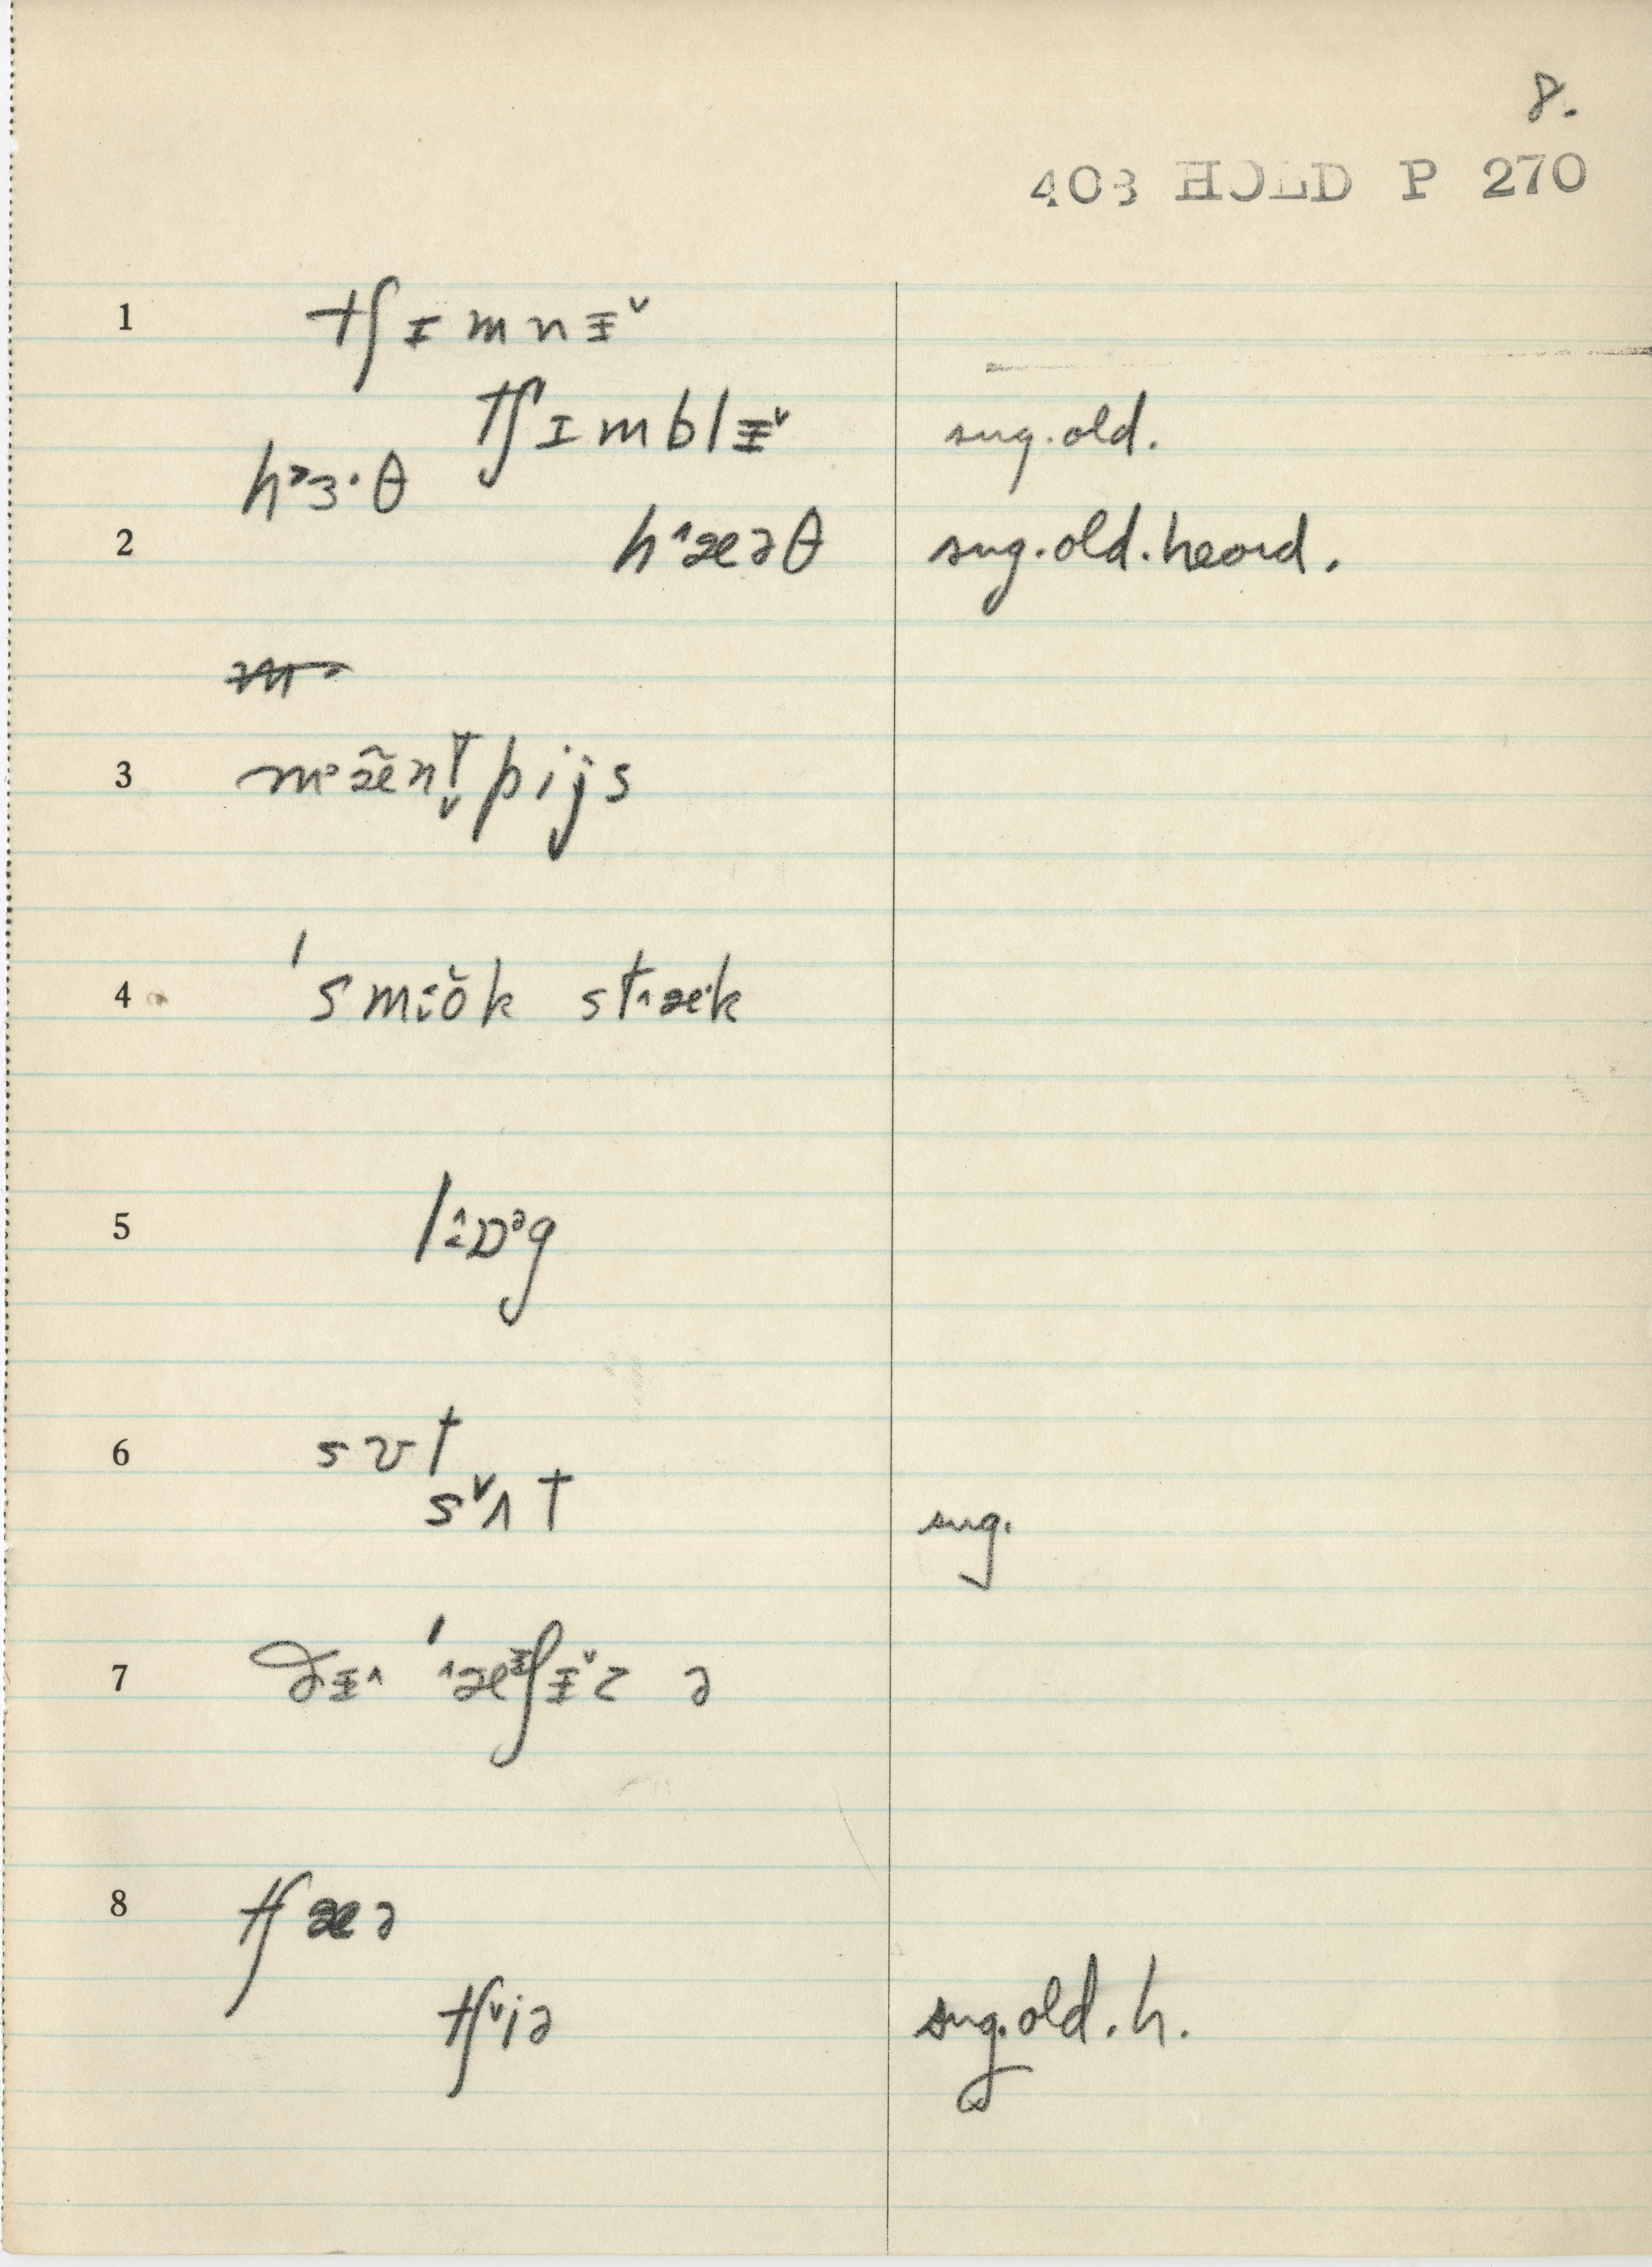 8.
403 HOLD P 270
1 tʃɪmnɪ˅
tʃɪmblɪ˅ sug. old.
h˃ɜ·θ
2 h˄æəθ sug. old. heard.
3 m˃æ̃nt̬pijs
4 ˈsmɔ̆k st˄æ·k
5 l ɒᵊg
6 sʊt
s˅ʌt sug.
7 ðɪ˄ ˈ˄æᶤʃɪ˅z ə
8 tʃæə
tʃ˅iə sug. old. h.